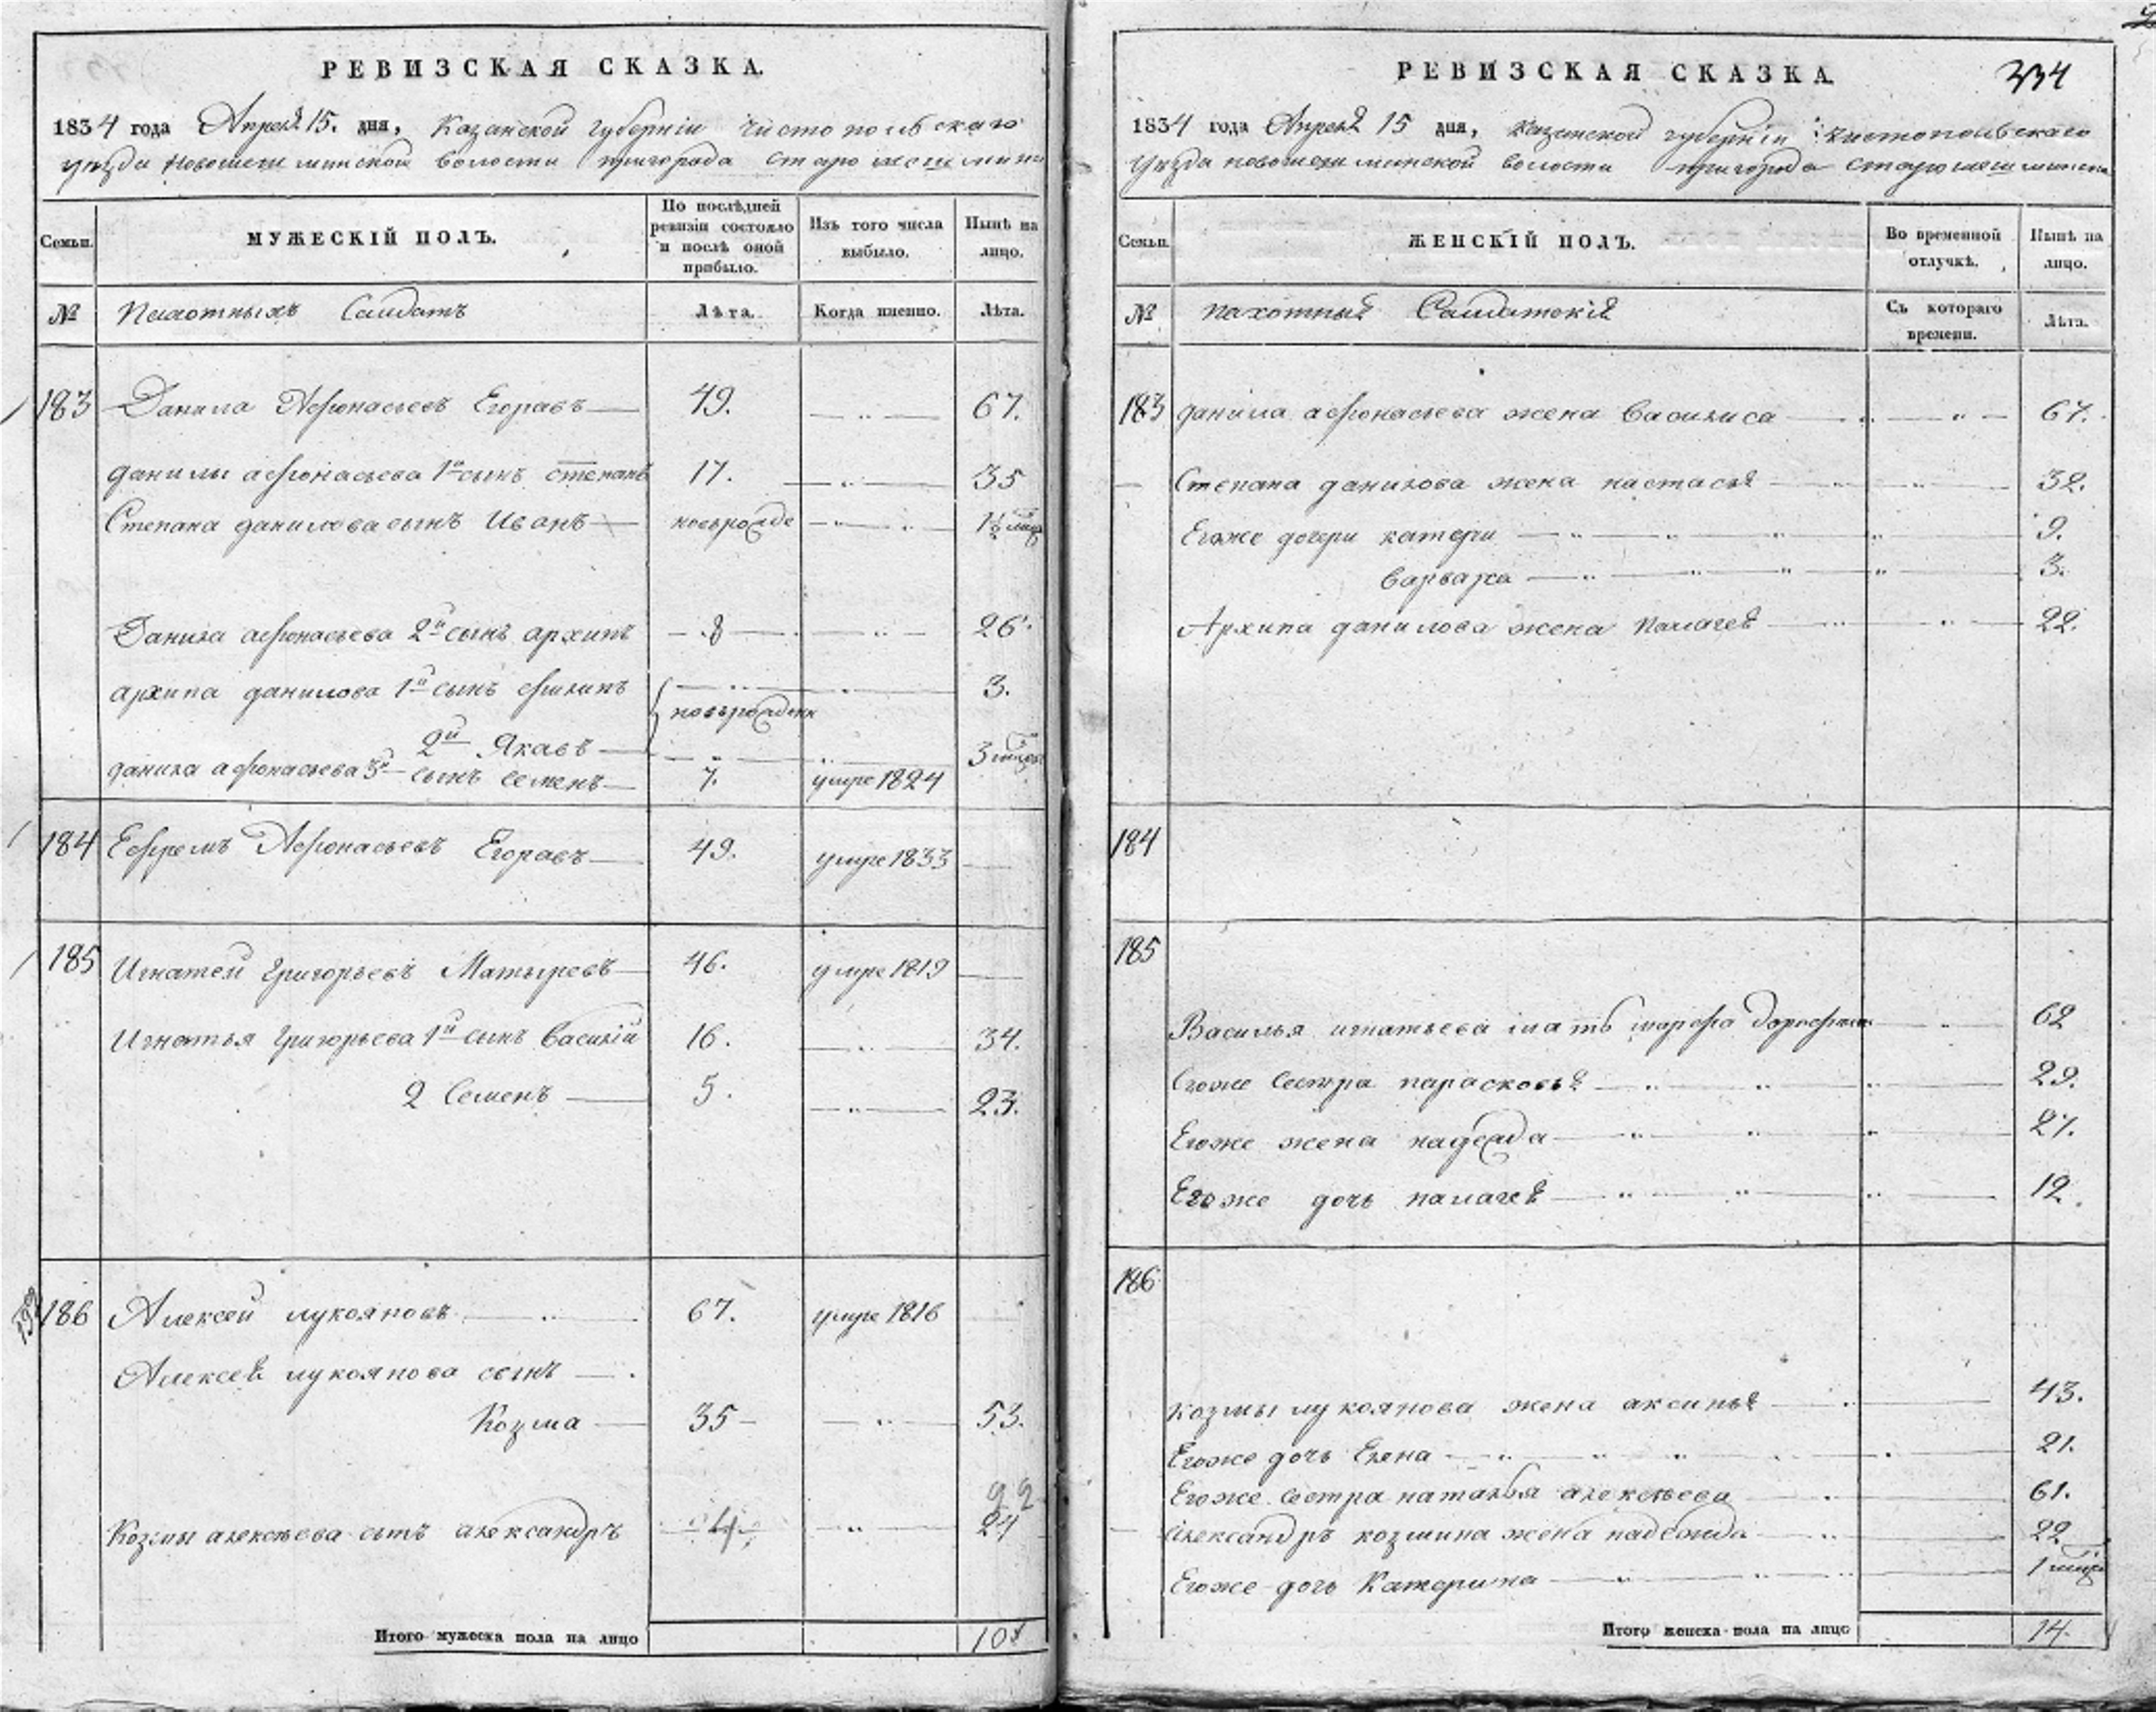 РЕВИЗСКАЯ СКАЗКА.
1834 года Апреля 15. дня, Казанской губернiи Чистопольскаго
уезда Новошешминской волости пригорода Старошешминска
Семьи. МУЖЕСКІЙ ПОЛЪ. По послѣдней ревизіи состояло и послѣ оной прибыло. Изъ того числа выбыло. Нынѣ на лицо.
№ Пахотныхъ Салдатъ Лѣта. Когда именно. Лѣта.
183 Данила Афонасьевъ Егоравъ 49. 67.
Данилы афонасьева 1й сынъ степанъ 17. 35
Степана данилова сынъ Иванъ новорожде 1½
Данила афонасьева 2й сынъ архипъ 8 26.
архипа данилова 1й сынъ филипъ 3.
новорожденн
2й Якавъ 3
данила афонасьева 3й сынъ семенъ 7. умре 1824
184 Ефремъ Афонасьевъ Егоравъ 49. умре 1833
185 Игнатей Григорьевъ Матыревъ 46. умре 1819
Игнатья Григорьева 1й сынъ Василiй 16. 34.
2 Семенъ 5. 23.
186 Алексей лукояновъ 67. умре 1816
Алексея лукоянова сынъ
Козма 35 53.
22
Козмы алексѣева сынъ александръ 4.
Итого мужеска пола на лицо 10
РЕВИЗСКАЯ СКАЗКА. 334
1834 года Апреля 15 дня, Казанской губернiи Чистопольскаго
уезда новошешминской волости пригорода старошешминска
Семьи. ЖЕНСКІЙ ПОЛЪ. Во временной отлучкѣ. Нынѣ на лицо.
№ пахотныя Салдатскiя Съ котораго времени. Лѣта.
183 данила афонасьева жена василиса 67.
Степана данилова жена настасья 32.
Егоже дочери катери 9.
варвара 3.
Архипа данилова жена палагея 22.
184
185
Василья игнатьева мать марфа 62
Егоже сестра парасковья 29.
Егоже жена надежда 27.
Егоже дочь палагея 12.
186
Козмы лукоянова жена аксинья 43.
Егоже дочь Елена 21.
Егоже сестра наталья алексѣева 61.
александръ козмина жена надежда 22
Егоже дочь Катерина 1
Итого женска пола на лицо 14.